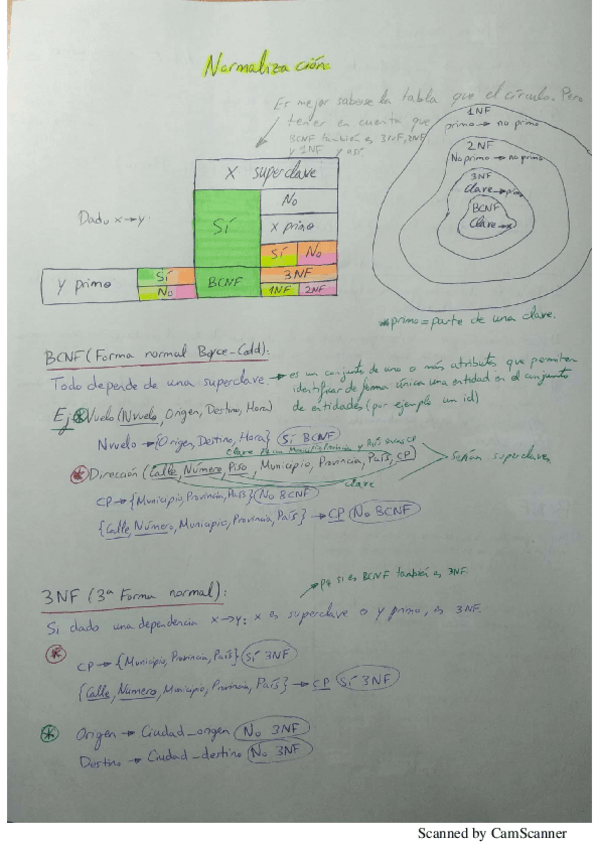 Normalización
Es mejor saberse la tabla que el círculo. Pero
tener en cuenta que
BCNF también es 3NF, 2NF
y 1NF y así
1NF
primo → no primo
2NF
No primo → no primo
3NF
clave → primo
BCNF
Clave →
X superclave
Dado x→y:
Sí
No
X primo
Sí No
Y primo
Sí
No
BCNF
3NF
1NF 2NF
*primo = parte de una clave.
BCNF (Forma normal Boyce-Codd):
Todo depende de una superclave. → es un conjunto de uno o más atributos que permiten
identificar de forma única una entidad en el conjunto
de entidades (por ejemplo un id)
Ej: * Vuelo (Nvuelo, Origen, Destino, Hora)
Nvuelo → {Origen, Destino, Hora} Sí BCNF
* Dirección (Calle, Número, Piso, Municipio, Provincia, País, CP)
Serían superclave
clave
CP → {Municipio, Provincia, País} No BCNF
{Calle, Número, Municipio, Provincia, País} → CP No BCNF
3NF (3ª Forma normal):
pq si es BCNF también es 3NF.
Si dado una dependencia x→y: x es superclave o y primo, es 3NF.
* CP → {Municipio, Provincia, País} Sí 3NF
{Calle, Número, Municipio, Provincia, País} → CP Sí 3NF
* Origen → Ciudad_origen No 3NF
Destino → Ciudad_destino No 3NF
Scanned by CamScanner